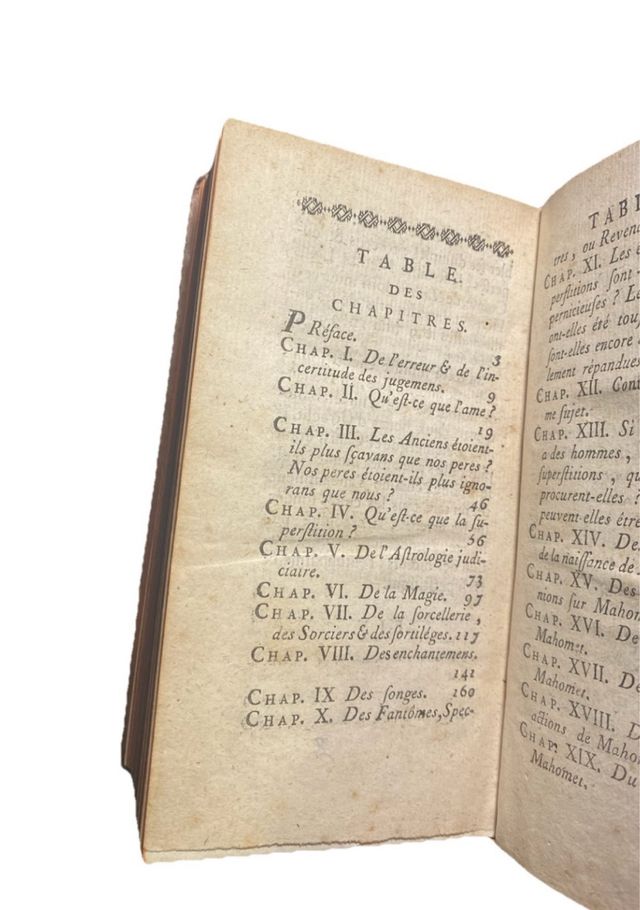 TABLE
DES
CHAPITRES.
PRéface. 3
CHAP. I. De l'erreur & de l'in-
certitude des jugemens. 9
CHAP. II. Qu'eſt-ce que l'ame?
19
CHAP. III. Les Anciens étoient-
ils plus ſçavans que nos peres?
Nos peres étoient-ils plus igno-
rans que nous? 46
CHAP. IV. Qu'eſt-ce que la ſu-
perſtition? 56
CHAP. V. De l'Aſtrologie judi-
ciaire. 73
CHAP. VI. De la Magie. 97
CHAP. VII. De la ſorcellerie,
des Sorciers & des ſortiléges. 117
CHAP. VIII. Des enchantemens.
141
CHAP. IX Des ſonges. 160
CHAP. X. Des Fantômes, Spec-
TABL
tres, ou Reven
CHAP. XI. Les
perſtitions ſont
pernicieuſes? Le
ont-elles été tou
ſont-elles encore
lement répandues
CHAP. XII. Cont
me ſujet.
CHAP. XIII. Si
a des hommes,
ſuperſtitions, qu
procurent-elles?
peuvent-elles être
CHAP. XIV. De
de la naiſſance de
CHAP. XV. Des
nions ſur Mahom
CHAP. XVI. De
Mahomet.
CHAP. XVII. De
Mahomet.
CHAP. XVIII. D
actions de Maho
CHAP. XIX. Du
Mahomet,